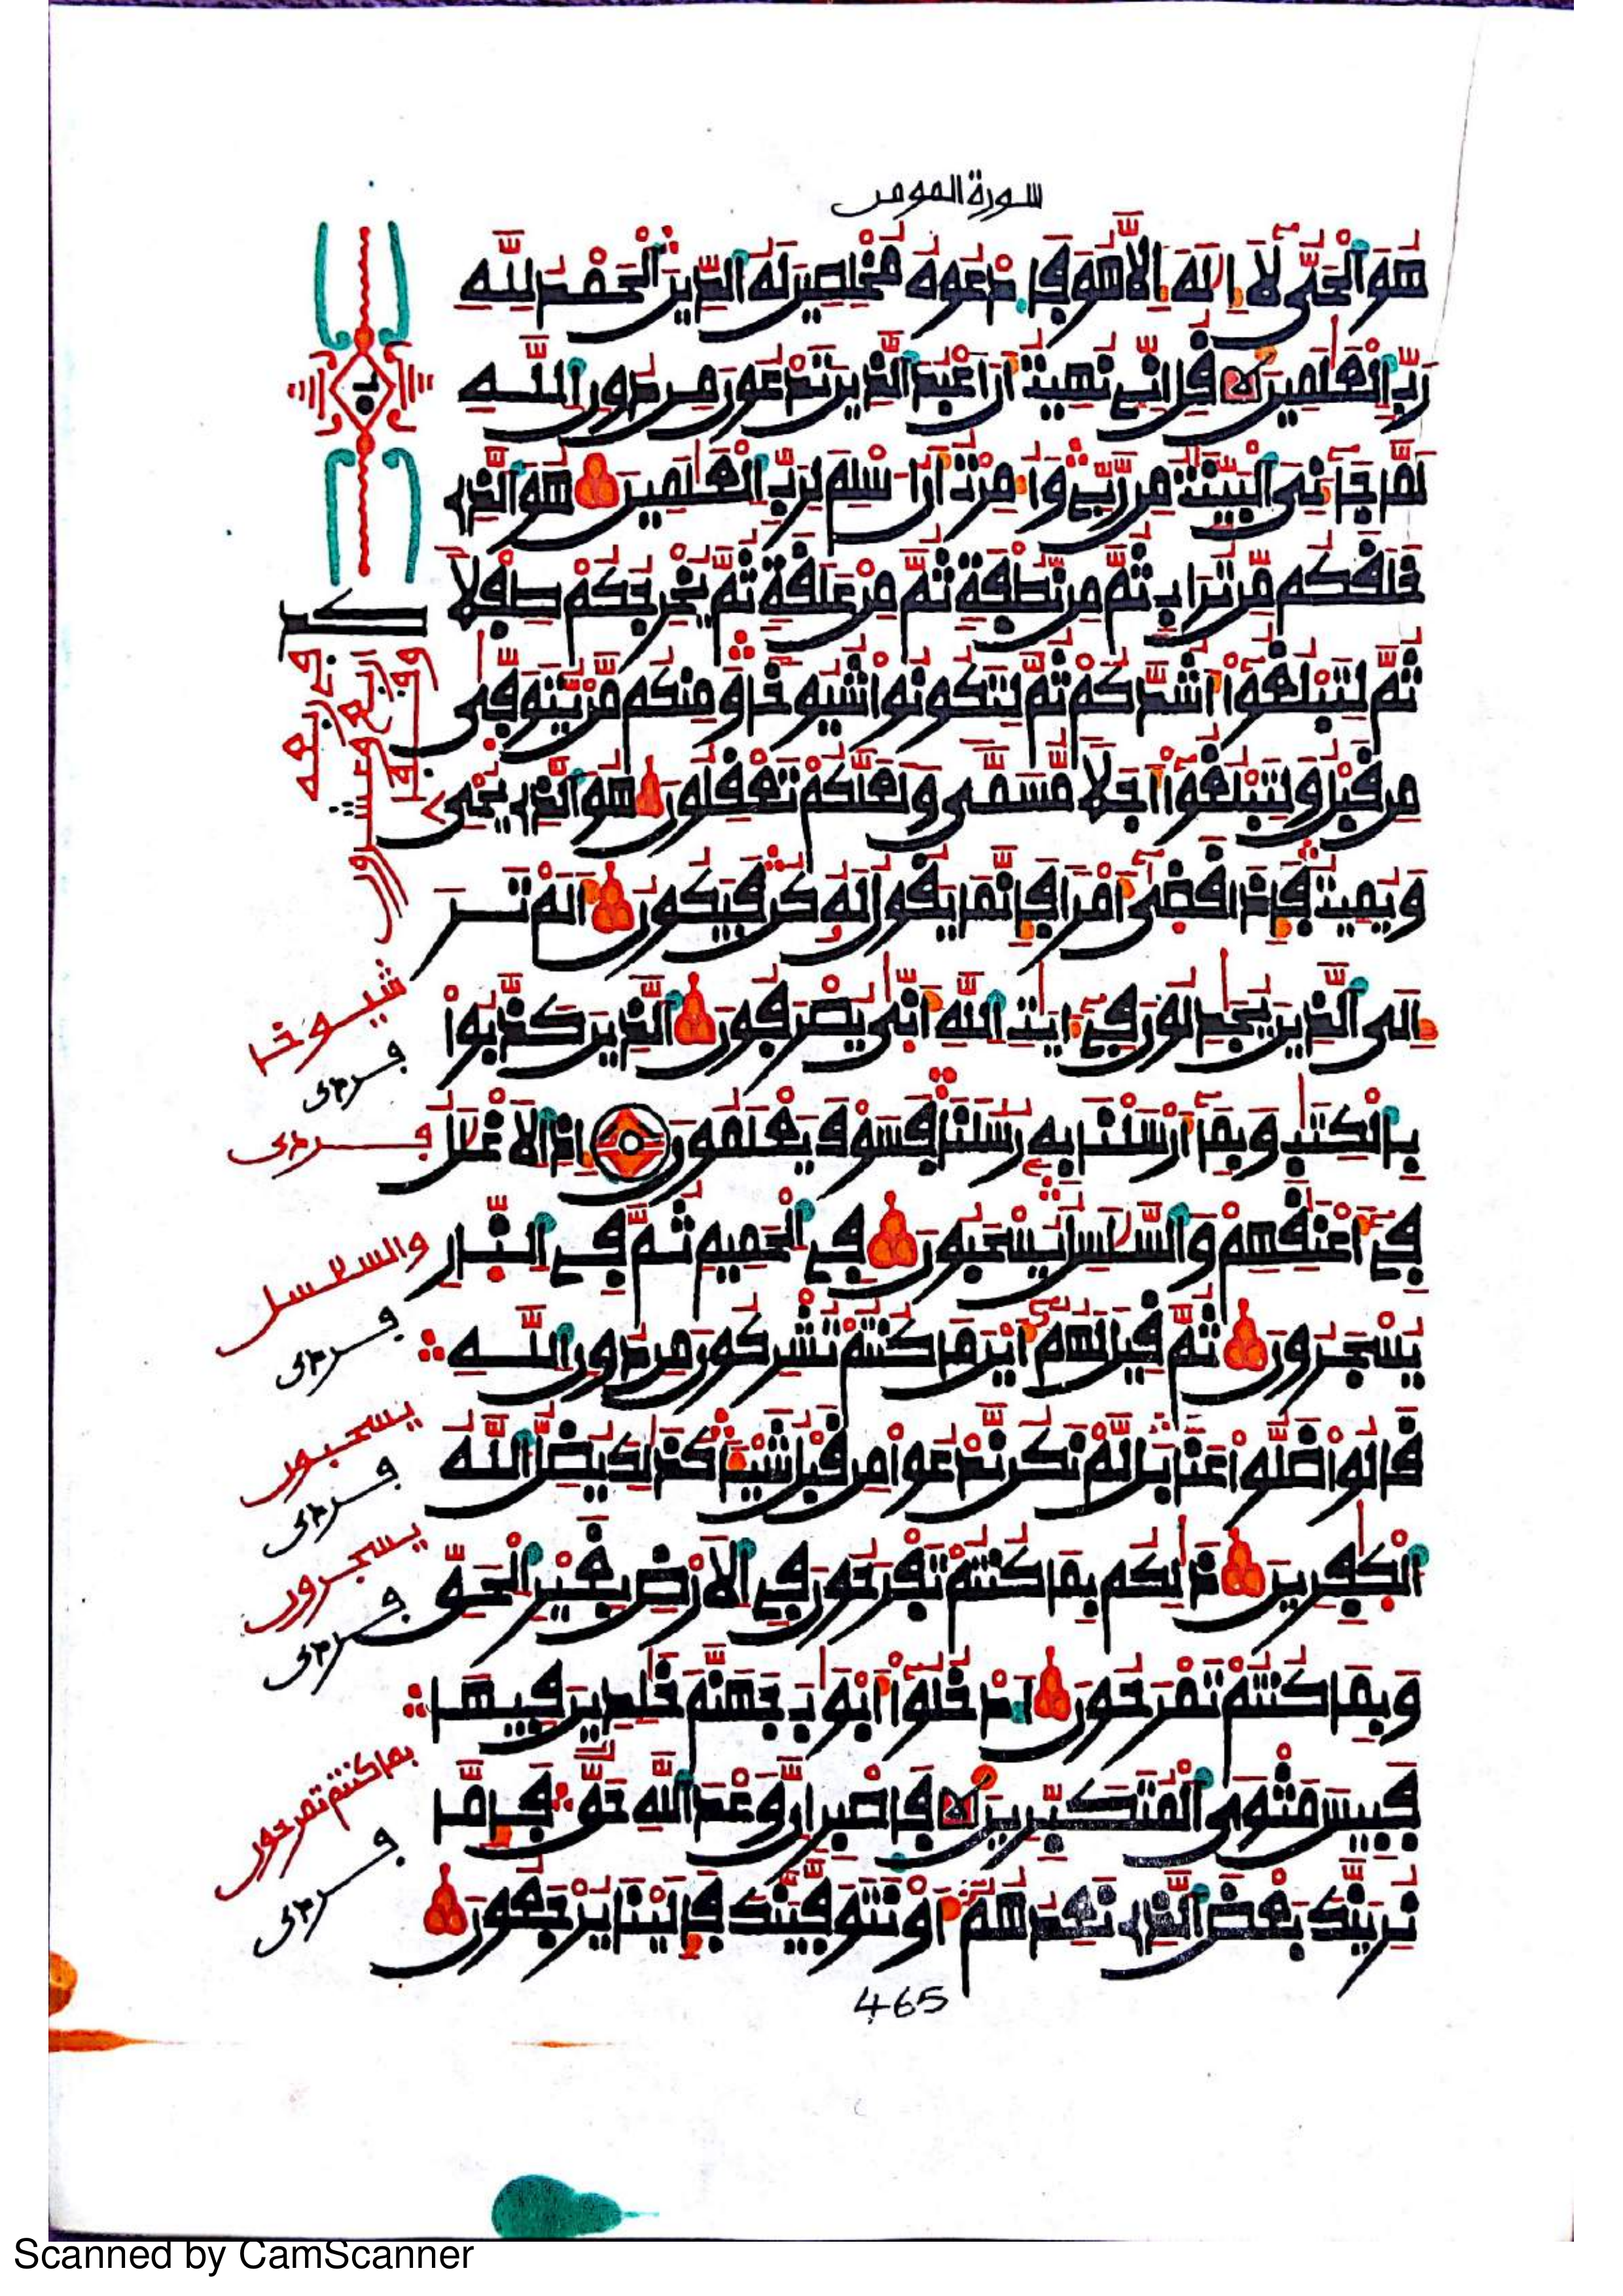 سورة المومن
هُوَ ٱلْحَيُّ لَآ إِلَٰهَ إِلَّا هُوَ فَٱدْعُوهُ مُخْلِصِينَ لَهُ ٱلدِّينَ ٱلْحَمْدُ لِلَّهِ
رَبِّ ٱلْعَٰلَمِينَ قُلْ إِنِّي نُهِيتُ أَنْ أَعْبُدَ ٱلَّذِينَ تَدْعُونَ مِن دُونِ ٱللَّهِ
لَمَّا جَآءَنِيَ ٱلْبَيِّنَٰتُ مِن رَّبِّي وَأُمِرْتُ أَنْ أُسْلِمَ لِرَبِّ ٱلْعَٰلَمِينَ هُوَ ٱلَّذِي
خَلَقَكُم مِّن تُرَابٍ ثُمَّ مِن نُّطْفَةٍ ثُمَّ مِنْ عَلَقَةٍ ثُمَّ يُخْرِجُكُمْ طِفْلًا
ثُمَّ لِتَبْلُغُوٓا۟ أَشُدَّكُمْ ثُمَّ لِتَكُونُوا۟ شُيُوخًا وَمِنكُم مَّن يُتَوَفَّىٰ
مِن قَبْلُ وَلِتَبْلُغُوٓا۟ أَجَلًا مُّسَمًّى وَلَعَلَّكُمْ تَعْقِلُونَ هُوَ ٱلَّذِي يُحْيِي
وَيُمِيتُ فَإِذَا قَضَىٰٓ أَمْرًا فَإِنَّمَا يَقُولُ لَهُ كُن فَيَكُونُ أَلَمْ تَرَ
إِلَى ٱلَّذِينَ يُجَٰدِلُونَ فِيٓ ءَايَٰتِ ٱللَّهِ أَنَّىٰ يُصْرَفُونَ ٱلَّذِينَ كَذَّبُوا۟
بِٱلْكِتَٰبِ وَبِمَآ أَرْسَلْنَا بِهِ رُسُلَنَا فَسَوْفَ يَعْلَمُونَ إِذِ ٱلْأَغْلَٰلُ
فِيٓ أَعْنَٰقِهِمْ وَٱلسَّلَٰسِلُ يُسْحَبُونَ فِي ٱلْحَمِيمِ ثُمَّ فِي ٱلنَّارِ
يُسْجَرُونَ ثُمَّ قِيلَ لَهُمْ أَيْنَ مَا كُنتُمْ تُشْرِكُونَ مِن دُونِ ٱللَّهِ
قَالُوا۟ ضَلُّوا۟ عَنَّا بَل لَّمْ نَكُن نَّدْعُوا۟ مِن قَبْلُ شَيْـًٔا كَذَٰلِكَ يُضِلُّ ٱللَّهُ
ٱلْكَٰفِرِينَ ذَٰلِكُم بِمَا كُنتُمْ تَفْرَحُونَ فِي ٱلْأَرْضِ بِغَيْرِ ٱلْحَقِّ
وَبِمَا كُنتُمْ تَمْرَحُونَ ٱدْخُلُوٓا۟ أَبْوَٰبَ جَهَنَّمَ خَٰلِدِينَ فِيهَا
فَبِيسَ مَثْوَى ٱلْمُتَكَبِّرِينَ فَٱصْبِرْ إِنَّ وَعْدَ ٱللَّهِ حَقٌّ فَإِمَّا
نُرِيَنَّكَ بَعْضَ ٱلَّذِي نَعِدُهُمْ أَوْ نَتَوَفَّيَنَّكَ فَإِلَيْنَا يُرْجَعُونَ
شيوخا
والسلاسل
يسحبون
يسجرون
بما كنتم تمرحون
465
Scanned by CamScanner